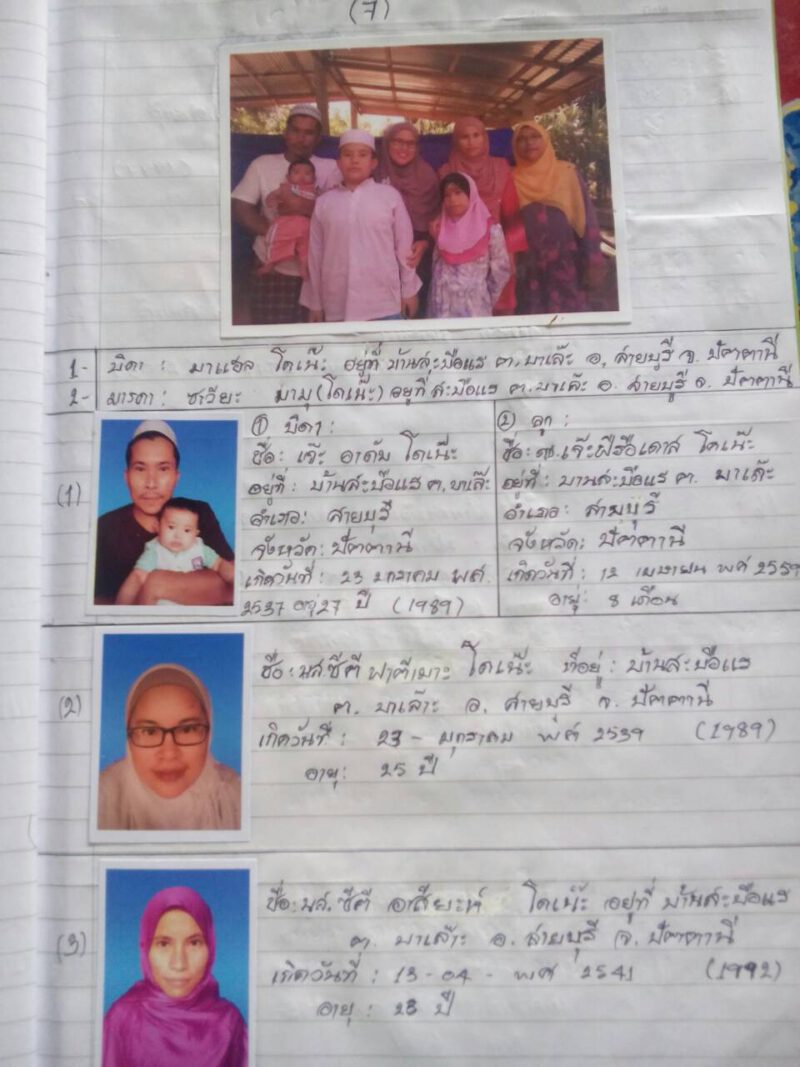 (7)
1- บิดา : มาแซล โดเน๊ะ อยู่ที่ บ้านสะบือแร ต. บาเล๊ะ อ. สายบุรี จ. ปัตตานี
2- มารดา : ซาวียะ มามุ (โดเน๊ะ) อยู่ที่ สะบือแร ต. บาเล๊ะ อ. สายบุรี จ. ปัตตานี
(1)
① บิดา :
ชื่อ : เจ๊ะ อาดัม โดเน๊ะ
อยู่ที่ : บ้านสะบือแร ต. บาเล๊ะ
อำเภอ : สายบุรี
จังหวัด : ปัตตานี
เกิดวันที่ : 23 มกราคม พศ.
2537 อายุ 27 ปี (1989)
② ลูก :
ชื่อ : ดช. เจ๊ะฟิรือเดาส โดเน๊ะ
อยู่ที่ : บานสะบือแร ต. บาเล๊ะ
อำเภอ : สายบุรี
จังหวัด : ปัตตานี
เกิดวันที่ : 12 เมษายน พศ 2559
อายุ : 8 เดือน
(2)
ชื่อ : นส. ซีตี ฟาตีเมาะ โดเน๊ะ ที่อยู่ : บ้านสะบือแร
ต. บาเล๊าะ อ. สายบุรี จ. ปัตตานี
เกิดวันที่ : 23 - มกราคม พศ 2539 (1989)
อายุ : 25 ปี
(3)
ชื่อ : นส. ซีตี อาสียะห์ โดเน๊ะ อยู่ที่ บ้านสะบือแร
ต. บาเล๊าะ อ. สายบุรี จ. ปัตตานี
เกิดวันที่ : 13 - 04 - พศ 2541 (1992)
อายุ : 23 ปี